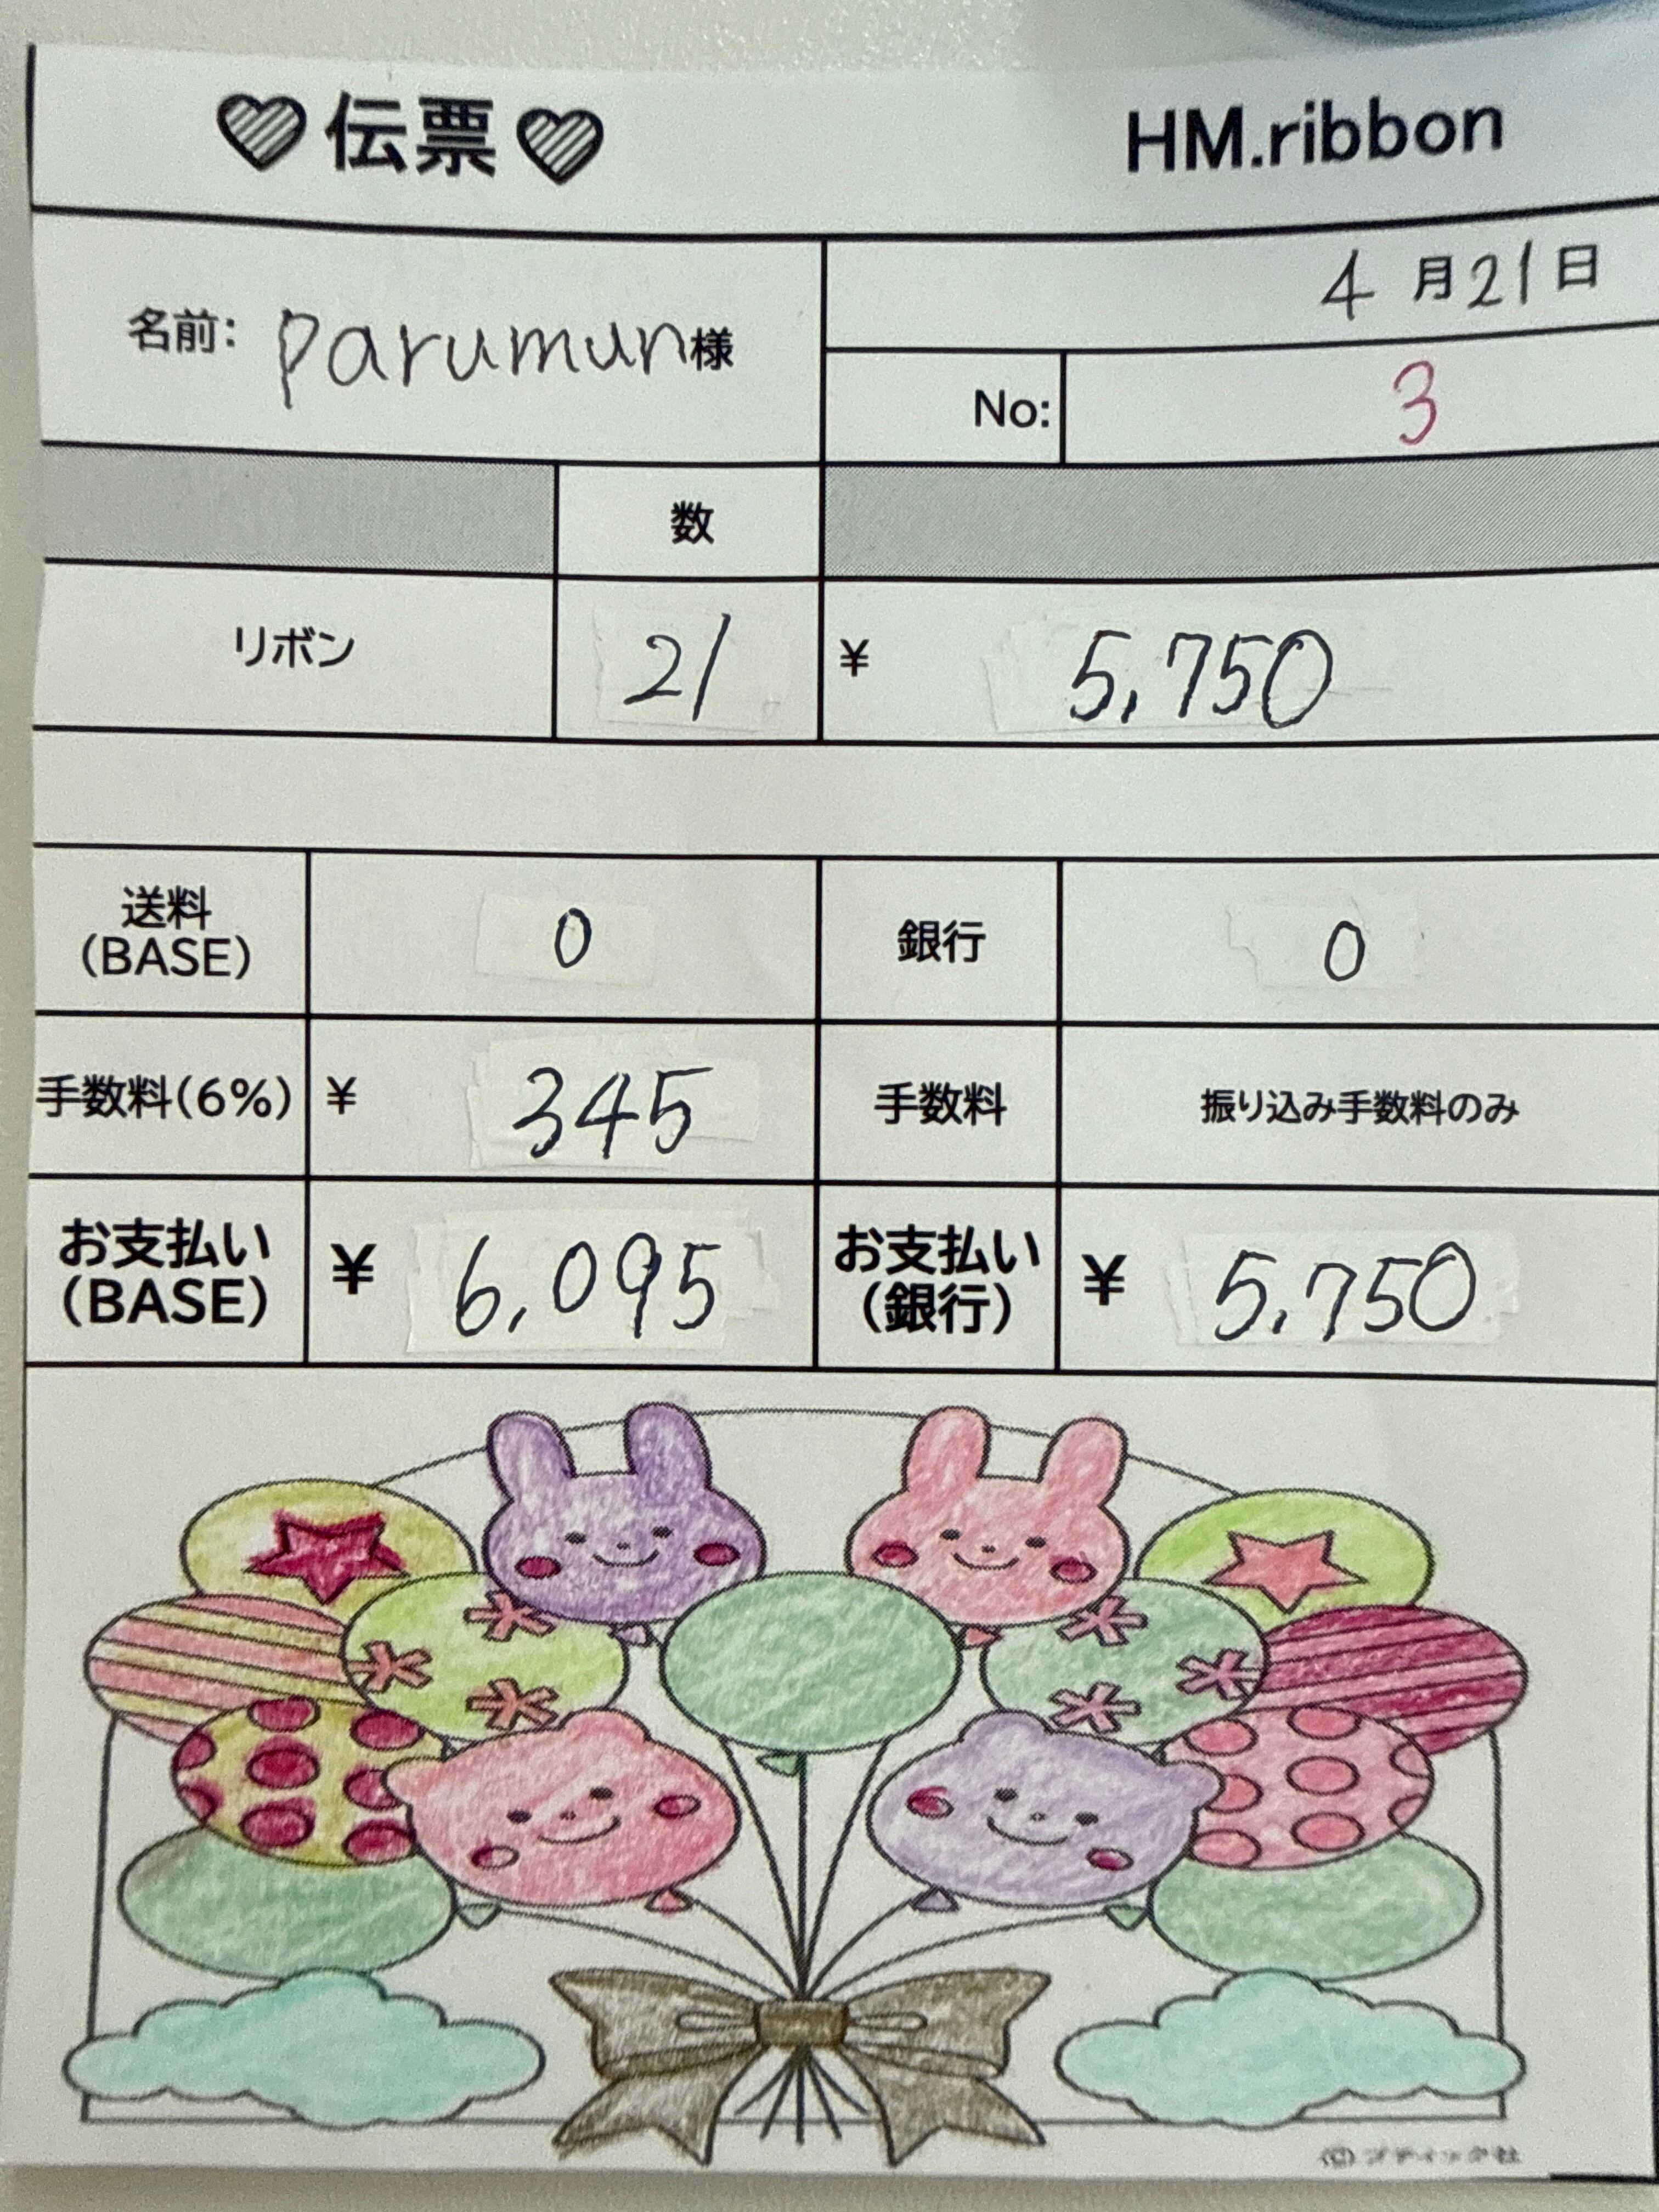 ♡伝票♡ HM.ribbon
4月21日
名前: parumun様
No: 3
数
リボン 21 ¥ 5,750
送料 (BASE) 0 銀行 0
手数料(6%) ¥ 345 手数料 振り込み手数料のみ
お支払い (BASE) ¥ 6,095 お支払い (銀行) ¥ 5,750